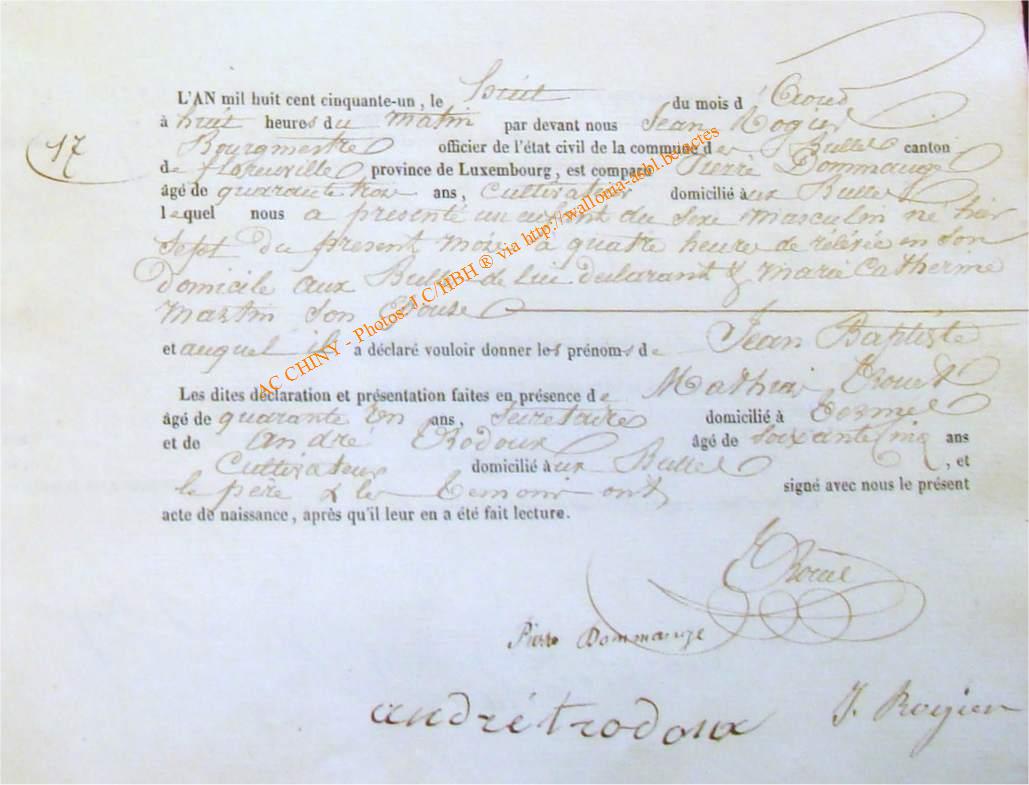 17
L'AN mil huit cent cinquante-un, le huit du mois d'Aoud
à huit heures du matin par devant nous Jean Rogier
Bourgmestre officier de l'état civil de la commune des Bulles canton
de florenville province de Luxembourg, est comparu Pierre Dommange
âgé de quarante trois ans, Cultivateur domicilié aux Bulles
lequel nous a présenté un enfant du sexe masculin né hier
sept du present mois à quatre heure de rélévée en son
Domicile aux Bulles de Lui declarant & marie Catherine
martin son Epouse
et auquel il a déclaré vouloir donner les prénoms de Jean Baptiste
Les dites déclaration et présentation faites en présence de Mathieu
âgé de quarante un ans, Secretaire domicilié à
et de andré Trodoux âgé de soixante cinq ans
Cultivateur domicilié aux Bulles, et
le père & les temoin ont signé avec nous le présent
acte de naissance, après qu'il leur en a été fait lecture.
Pierre Dommange
andré trodoux J. Rogier
AC CHINY - Photos: J.C/HBH ® via http://walloma-asbl.be/actes